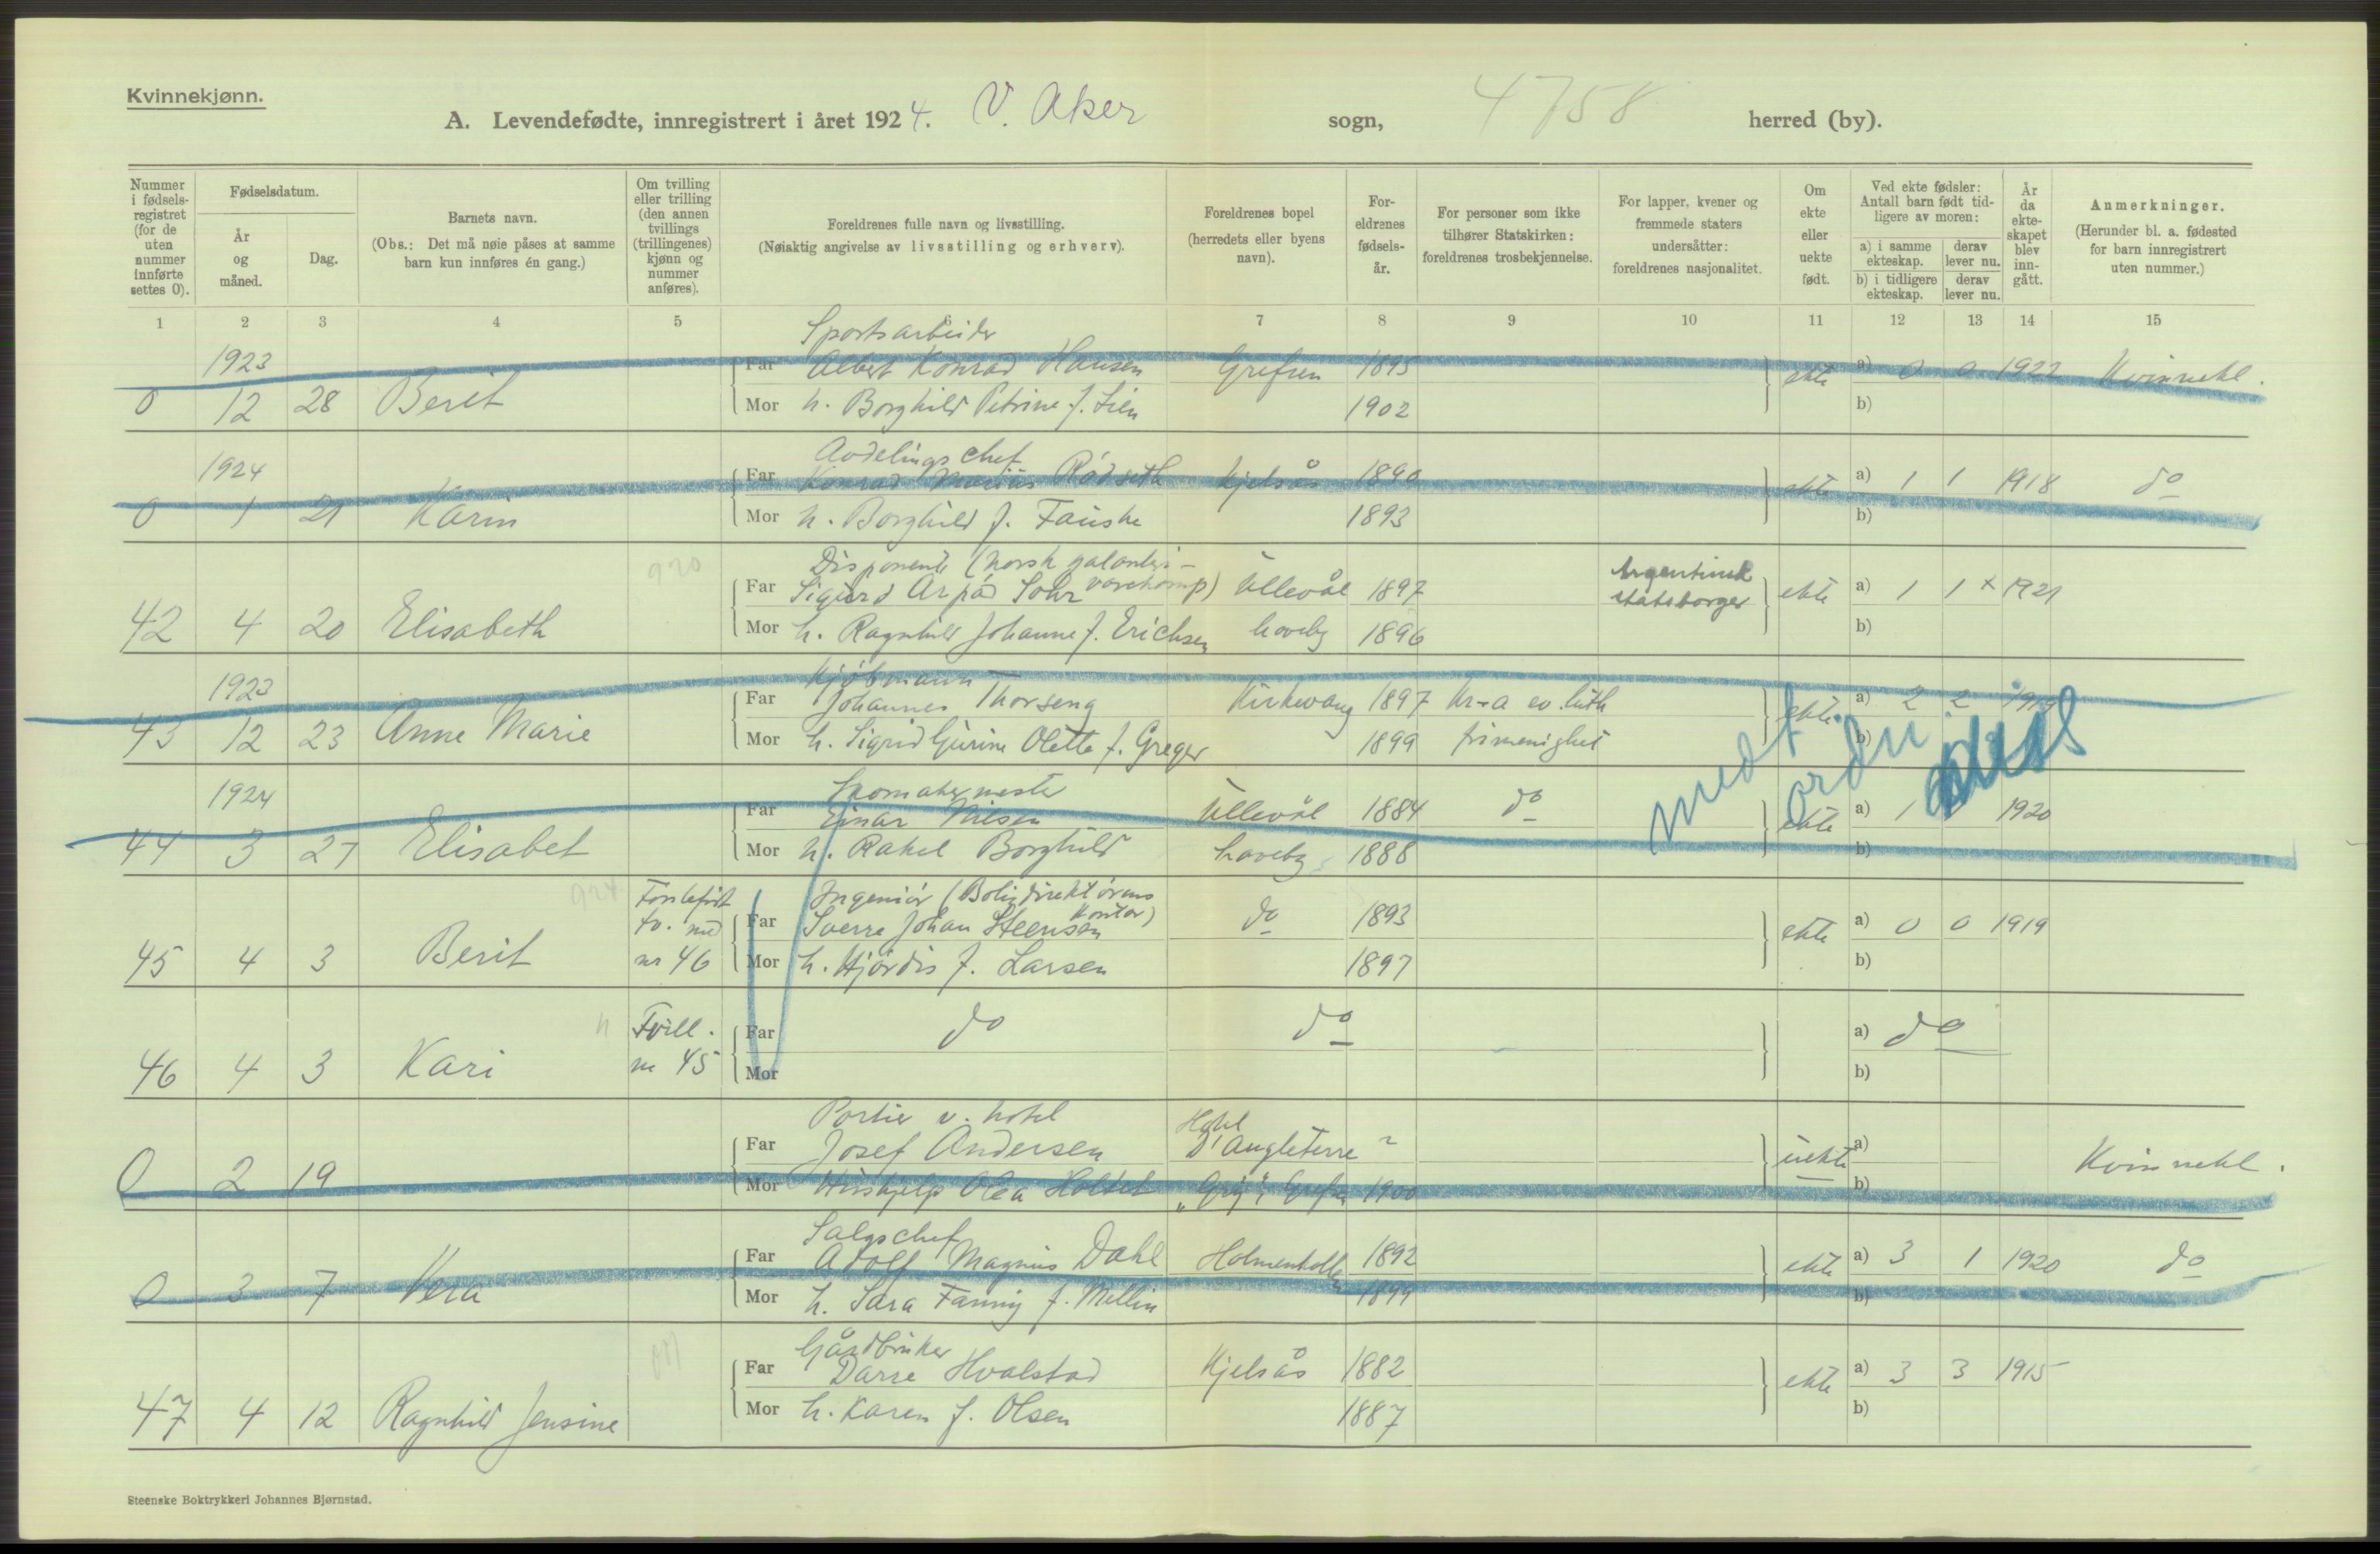 Kvinnekjønn.
A. Levendefødte, innregistrert i året 1924. V. Aker sogn, 4758 herred (by).
Nummer i fødsels-registret (for de uten nummer innførte settes 0).
Fødselsdatum.
År og måned.
Dag.
Barnets navn.
(Obs.: Det må nøie påses at samme barn kun innføres én gang.)
Om tvilling eller trilling (den annen tvillings (trillingenes) kjønn og nummer anføres).
Foreldrenes fulle navn og livsstilling.
(Nøiaktig angivelse av livsstilling og erhverv).
Foreldrenes bopel (herredets eller byens navn).
For-eldrenes fødsels-år.
For personer som ikke tilhører Statskirken: foreldrenes trosbekjennelse.
For lapper, kvener og fremmede staters undersåtter: foreldrenes nasjonalitet.
Om ekte eller uekte født.
Ved ekte fødsler: Antall barn født tid-ligere av moren:
a) i samme ekteskap. derav lever nu.
b) i tidligere ekteskap. derav lever nu.
År da ekte-skapet blev inn-gått.
Anmerkninger.
(Herunder bl. a. fødested for barn innregistrert uten nummer.)
1 2 3 4 5 6 7 8 9 10 11 12 13 14 15
Sportsarbeider
1923 Far Albert Konrad Hansen Grefsen 1895 ekte a) 0 0 1922 Kvinnekl.
0 12 28 Berit Mor h. Borghild Petrine f. Lien 1902 b)
Avdelingschef
1924 Far Konrad Marius Rødseth Kjelsås 1890 ekte a) 1 1 1918 do
0 1 21 Karin Mor h. Borghild f. Fauske 1893 b)
920 Disponent (norsk galanteri-
Far Sigurd Arpád Sohr varekomp) Ullevål 1897 Argentinsk statsborger ekte a) 1 1 x 1921
42 4 20 Elisabeth Mor h. Ragnhild Johanne f. Erichsen haveby 1896 b)
Kjøbmann
1923 Far Johannes Thorseng Kirkevang 1897 Kr-a ev. luth ekte a) 2 2 1919
43 12 23 Anne Marie Mor h. Sigrid Gurine Olette f. Greger 1899 frimenighet b)
medt ordn
Skomakermester
1924 Far Einar Nilsen Ullevål 1884 do ekte a) 1 1920
44 3 27 Elisabet Mor h. Rakel Borghild haveby 1888 b)
924 Førstefødt Ingeniør (Boligdirektørens
tv. med Far Sverre Johan Steensen kontor) do 1893 ekte a) 0 0 1919
45 4 3 Berit nr 46 Mor h. Hjørdis f. Larsen 1897 b)
Tvill. Far do do a) do
46 4 3 Kari nr 45 Mor b)
Portier v. hotel Hotel
Far Josef Andersen D'Angleterre ? uekte a) Kvinnekl.
0 2 19 Mor Hushjelp Olea Holtet 1900 b)
Salgschef
Far Adolf Magnus Dahl Holmenkollen 1892 ekte a) 3 1 1920 do
0 3 7 Vera Mor h. Sara Fanny f. Mellin 1899 b)
Gårdbruker
Far Darre Hvalstad Kjelsås 1882 ekte a) 3 3 1915
47 4 12 Ragnhild Jensine Mor h. Karen f. Olsen 1887 b)
Steenske Boktrykkeri Johannes Bjørnstad.